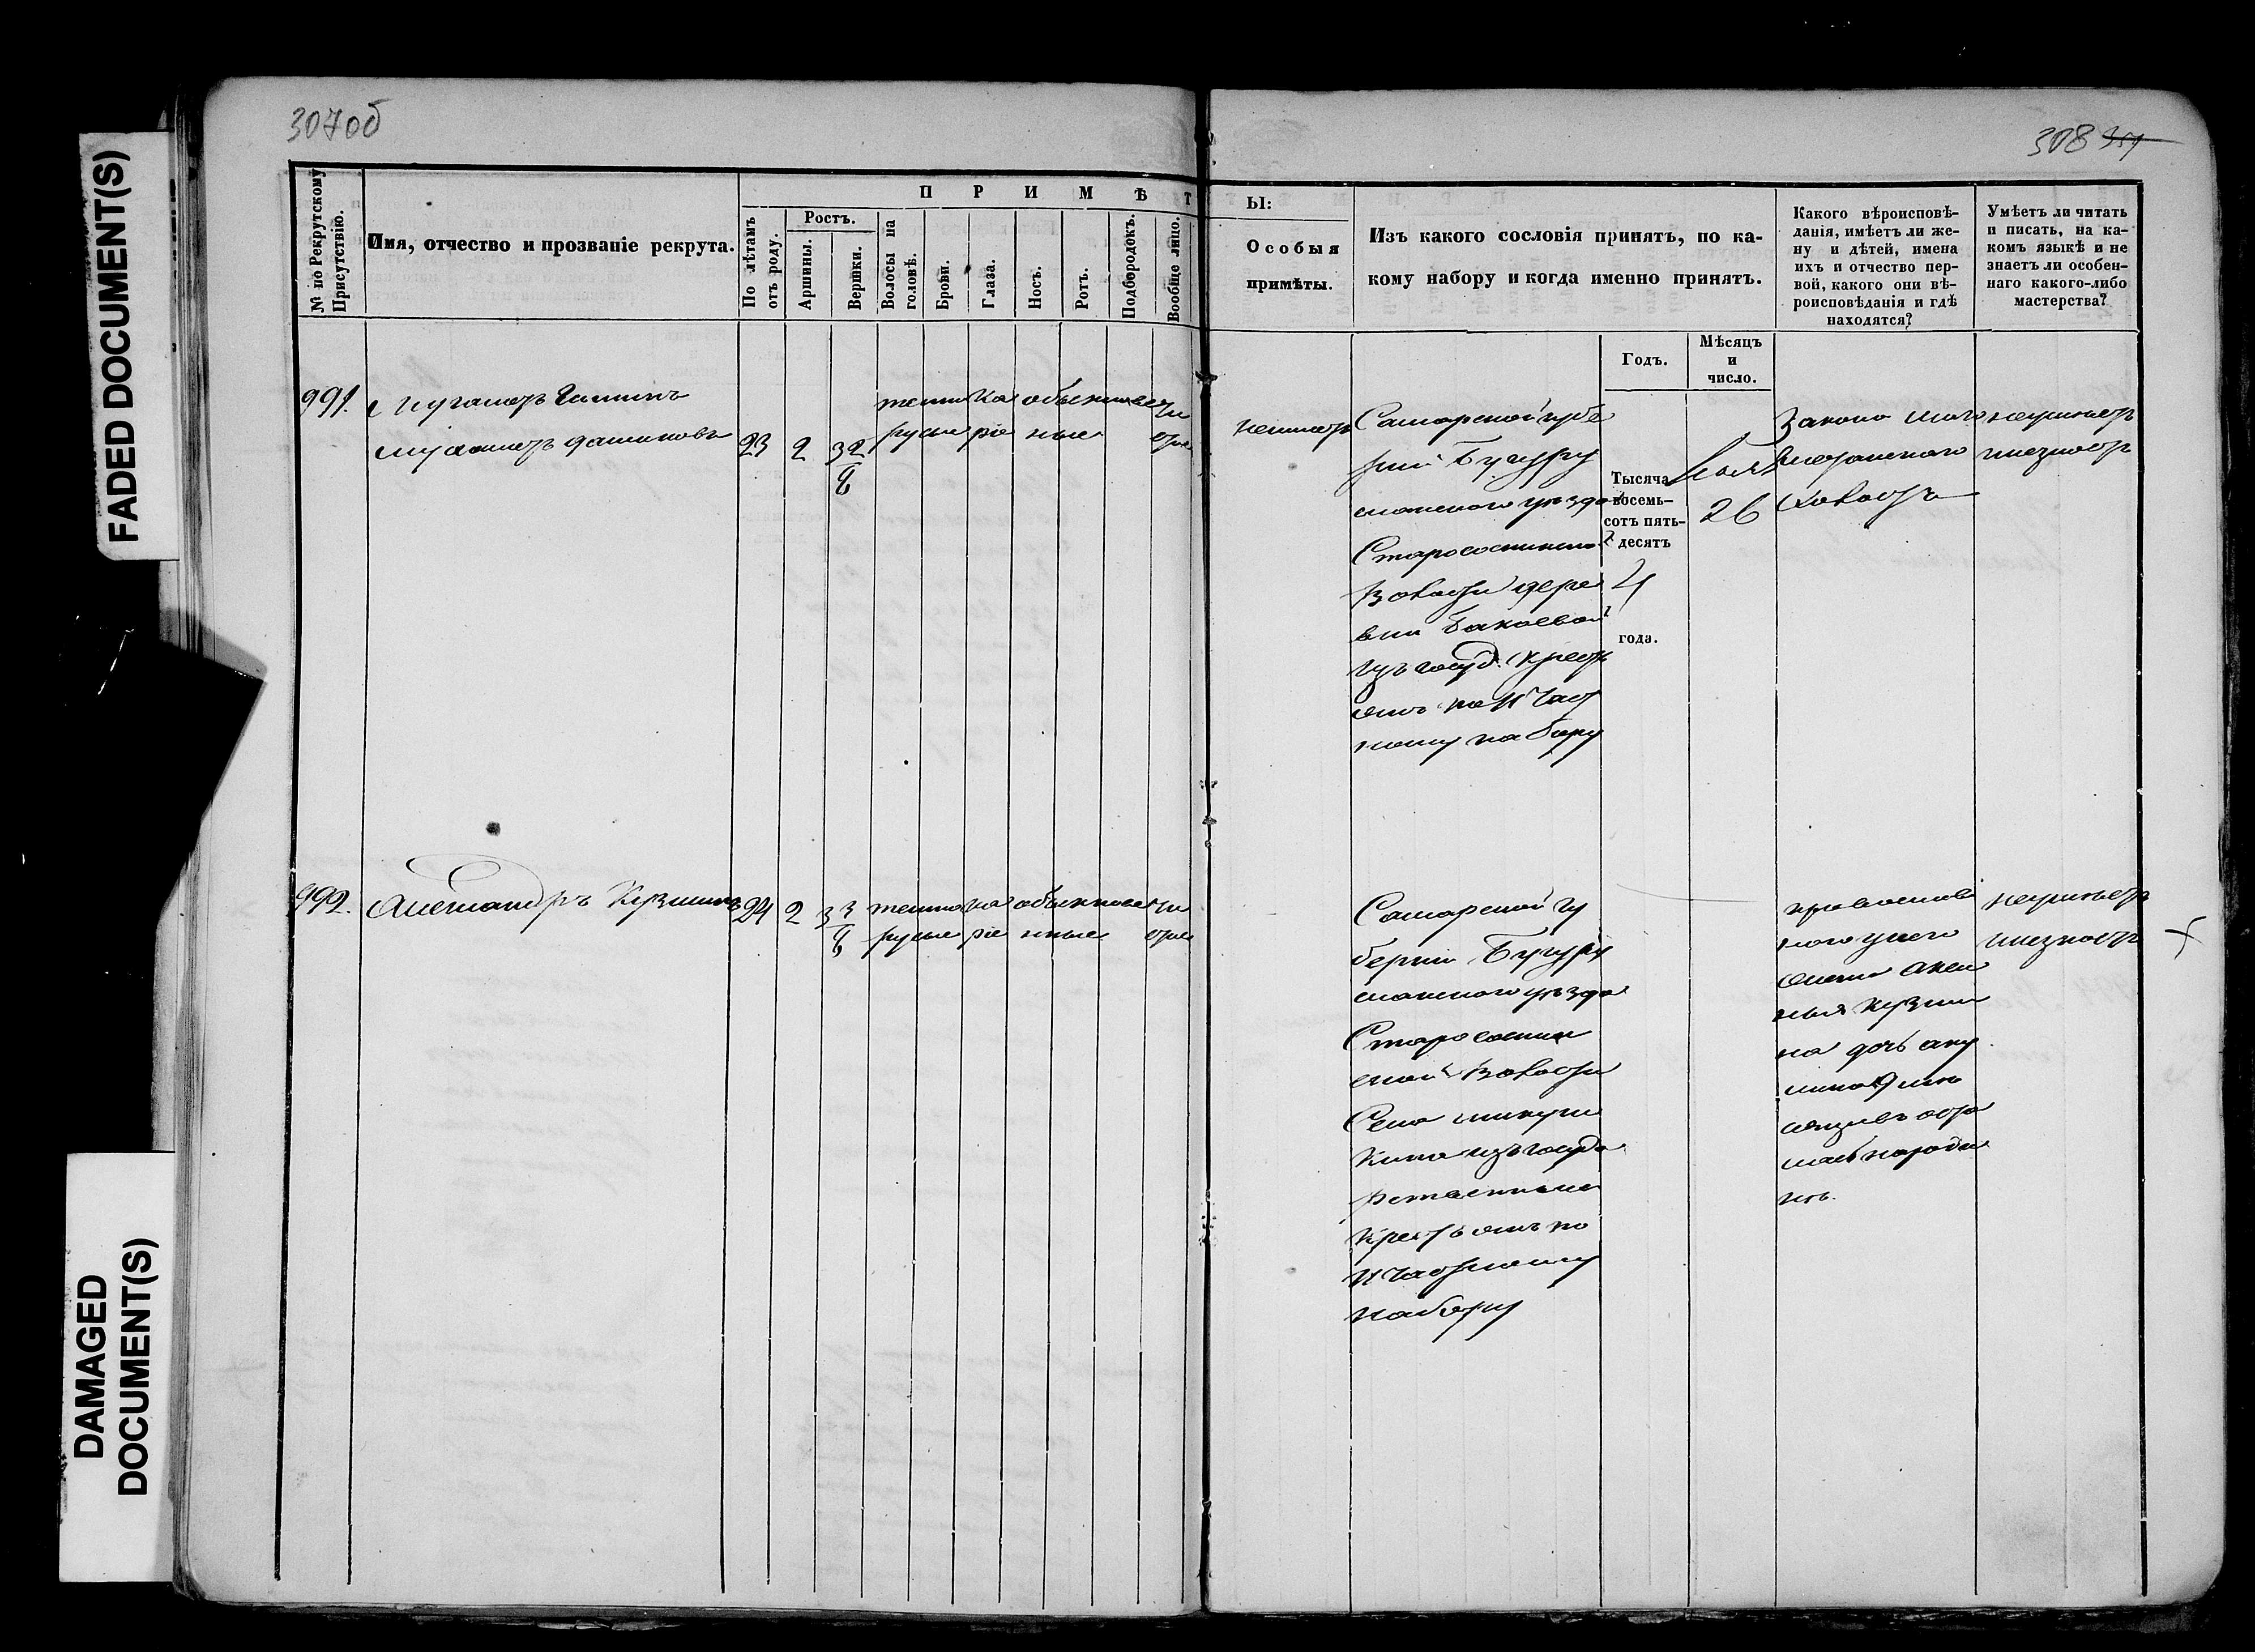 FADED DOCUMENT(S)
DAMAGED
DOCUMENT(S)
307об
308
№ по Рекрутскому
Присутствію.
Имя, отчество и прозваніе рекрута.
П Р И М Ѣ Т
По лѣтамъ
отъ роду.
Ростъ.
Аршины.
Вершки.
Волосы на
головѣ.
Брови.
Глаза.
Носъ.
Ротъ.
Подбородокъ.
Вообще лицо.
Ы:
Особыя
примѣты.
Изъ какого сословія принятъ, по ка-
кому набору и когда именно принятъ.
Какого вѣроисповѣ-
данія, имѣетъ ли же-
ну и дѣтей, имена
ихъ и отчество пер-
вой, какого они вѣ-
роисповѣданія и гдѣ
находятся?
Умѣетъ ли читать
и писать, на ка-
комъ языкѣ и не
знаетъ ли особен-
наго какого-либо
мастерства?
Годъ.
Мѣсяцъ
и
число.
991.
23
2
3 2/8
темно
русые
ка
рiе
обыкновен
ные
чи
стое
неимѣетъ
Самарской губе
рнии Бугуру
сланского уѣзда
Старососнинской
волости дере
вни Бакаевой
изъ госуд. крест
янъ по 11 част
ному набору
Тысяча
восемь-
сотъ пять-
десятъ
4
года.
26
закона маго
метанского
холостъ
неумѣетъ
инезнаетъ
992.
Александръ Кузминъ
24
2
3 3/8
темно
русые
ка
рiе
обыкновен
ные
чи
стое
Самарской гу
бернии Бугуру
сланского уѣзда
Старососнин
ской волости
Села
изъ госуда
рственныхъ
крестьянъ по
11 частному
набору
православ
ного у него
жена Аксинья
Кузмина
дочь Аку
лина 9 мѣ
сяцевъ оста
лась народи
нѣ.
неумѣетъ
инезнаетъ